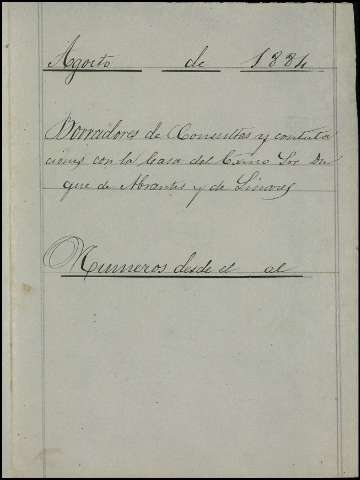 Agosto de 1884
Borradores de Consultas y contesta
ciones con la Casa del Excmo Sor Du
que de Abrantes y de Linares
Numeros desde el al